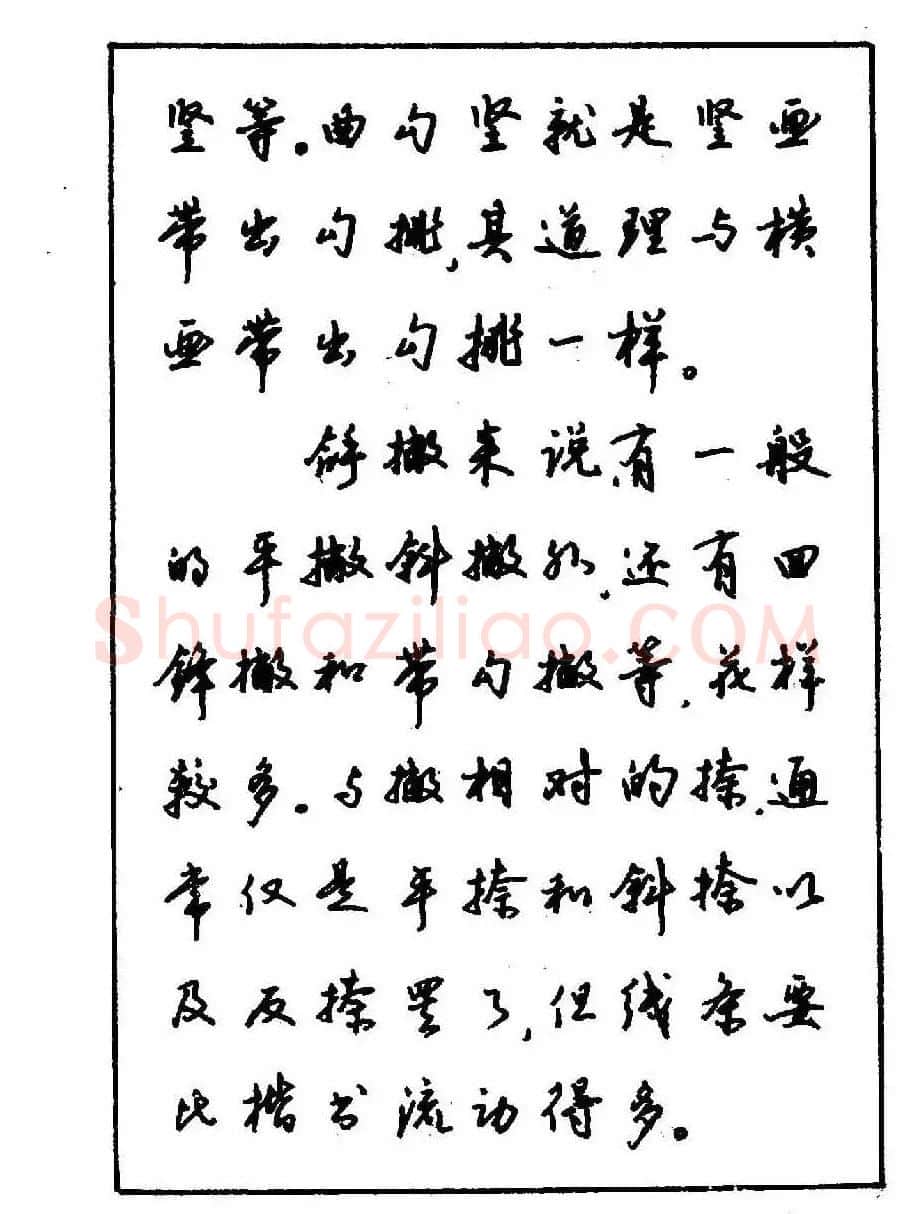 竖等。曲勾竖就是竖画
带出勾挑，其道理与横
画带出勾挑一样。
斜撇来说，有一般
的平撇斜撇外，还有回
锋撇和带勾撇等，花样
较多。与撇相对的捺，通
常仅是平捺和斜捺以
及反捺罢了，但线条要
比楷书流动得多。
Shufaziliao.COM